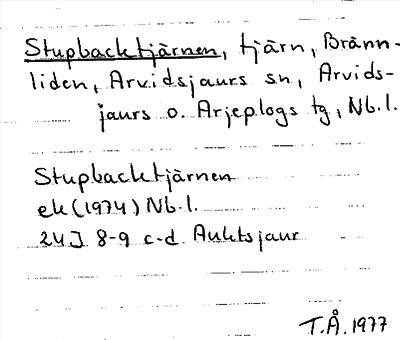 Stupbacktjärnen, tjärn, Bränn-
liden, Arvidsjaurs sn, Arvids-
jaurs o. Arjeplogs tg, Nb.l.
Stupbacktjärnen
ek (1974) Nb.l.
24J 8-9 c-d. Auktsjaur
T.Å. 1977